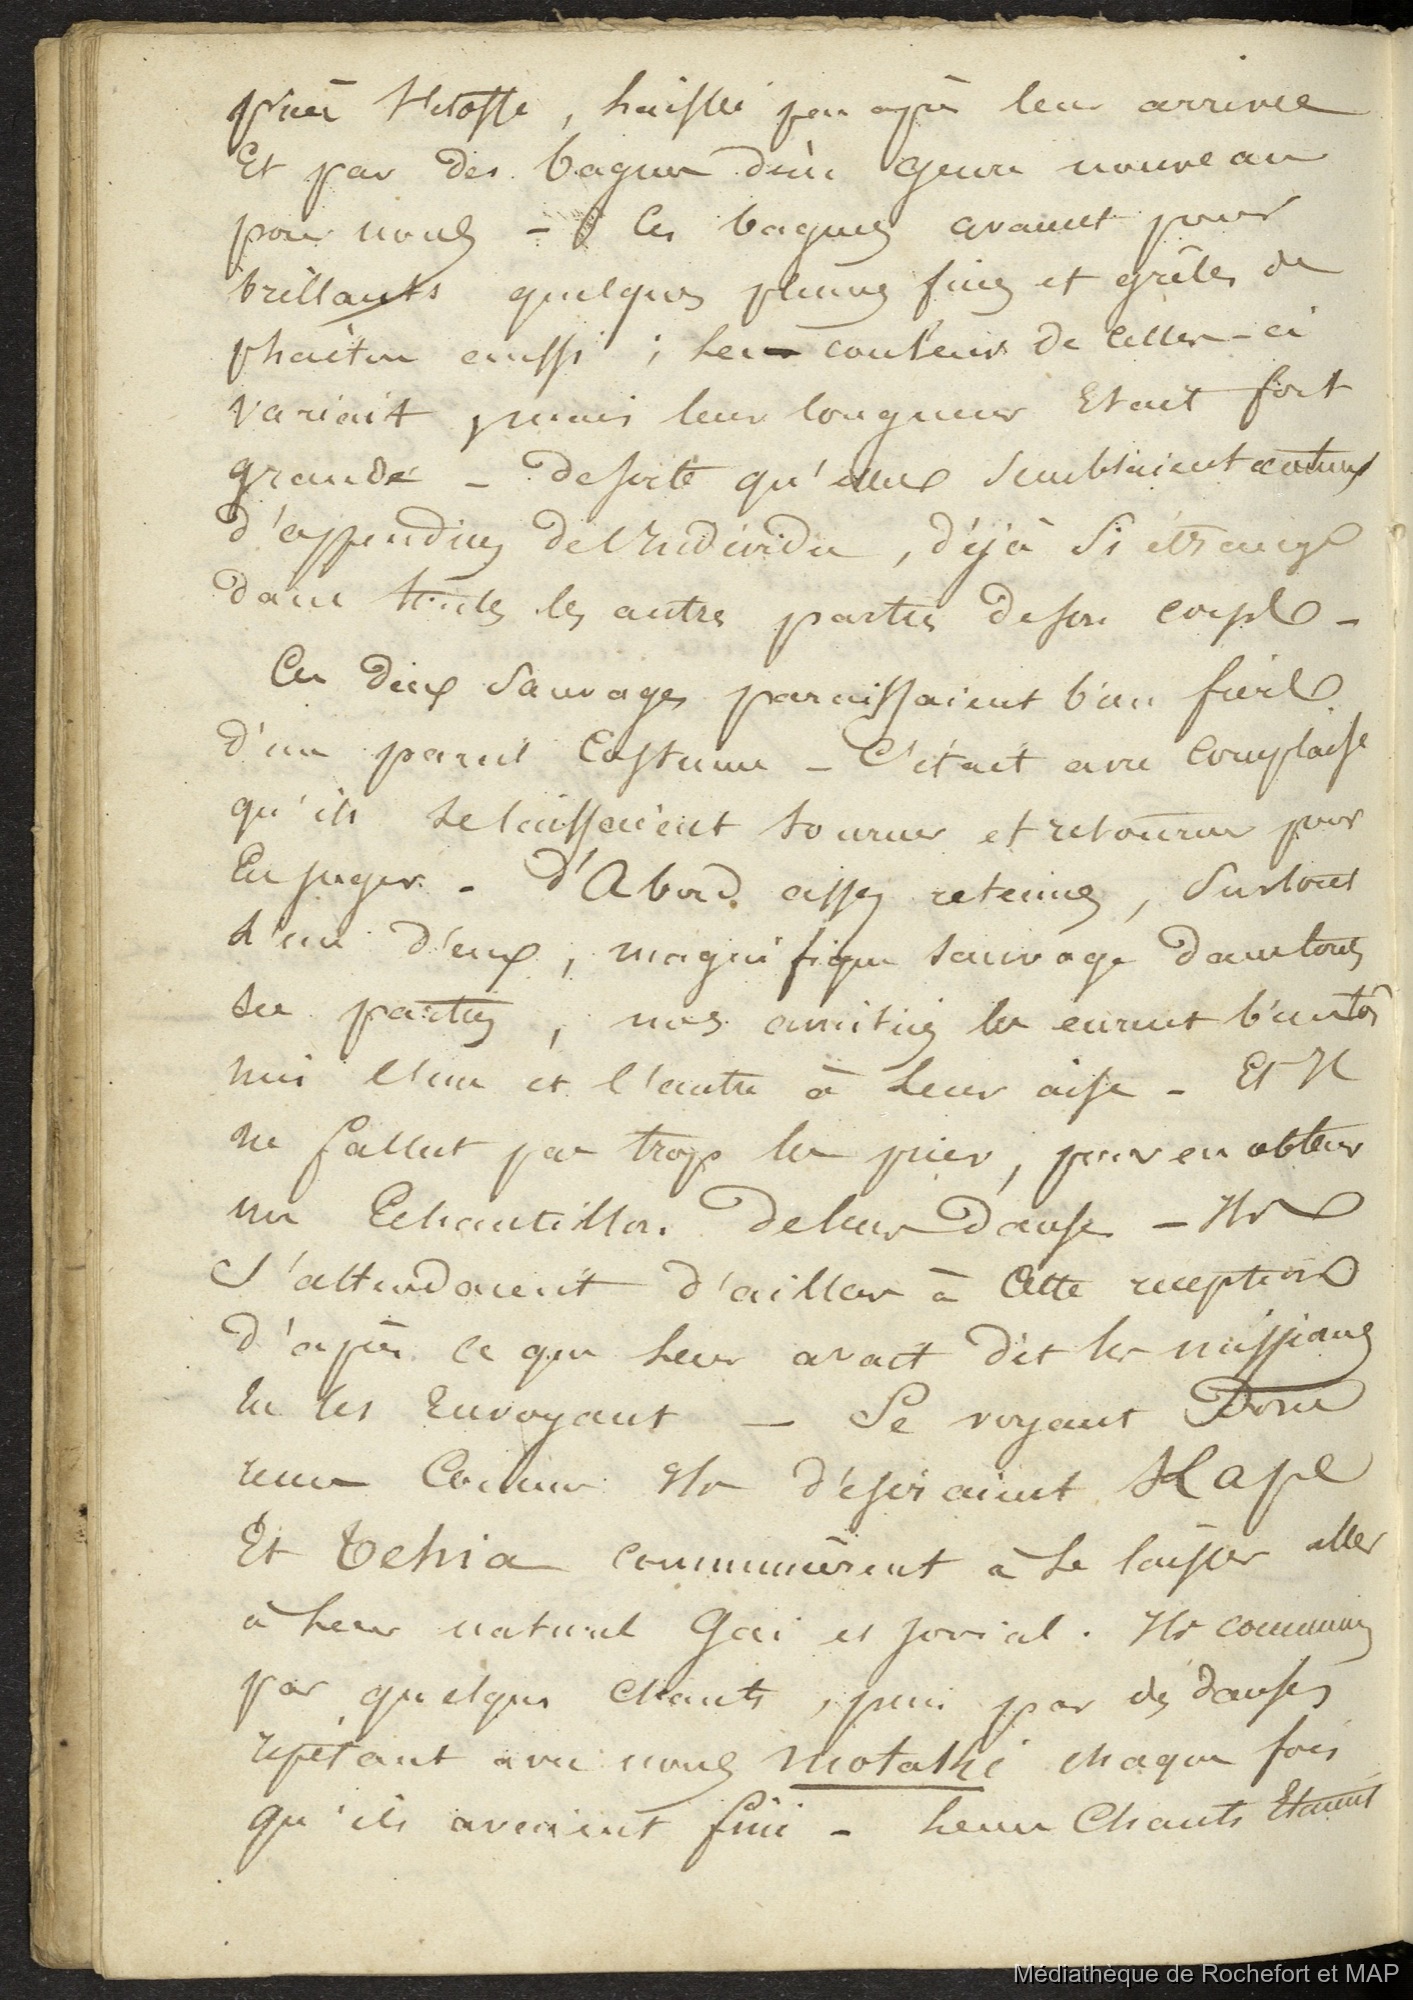 d'étoffe, laissée peu après leur arrivée
Et par des bagues d'un genre nouveau
pour nous - Ces bagues avaient pour
brillants quelques plumes fines et grêles de
phaéton aussi ; la couleur de celles-ci
variait, mais leur longueur Etait fort
grande - de sorte qu'elles semblaient autant
d'appendices de l'Individu, déjà si étrange
dans toutes les autres parties de son corps -
Ces deux Sauvages paraissaient bien fiers
d'un pareil Costume - C'était avec complaise
qu'ils se laissaient tourner et retourner pour
En juger - d'Abord assez retenus, Surtout
l'un d'eux, magnifique sauvage dans toutes
ses parties, nos amitiés les eurent bientôt
mis l'un et l'autre à leur aise - Et Il
ne fallut pas trop les prier, pour en obtenir
un Echantillon de leur danse - Ils
s'attendaient d'ailleurs à Cette reception
d'après ce que leur avait dit les missions
En les Envoyant - Se voyant Donc
reçus Comme Ils désiraient Kape
Et Tehia commencèrent à se laisser aller
à leur naturel Gai et jovial. Ils commenç
par quelques Chants, puis par des danses
répétant avec nous motaki chaque fois
qu'ils avaient fini - Leurs Chants Etaient
Médiathèque de Rochefort et MAP